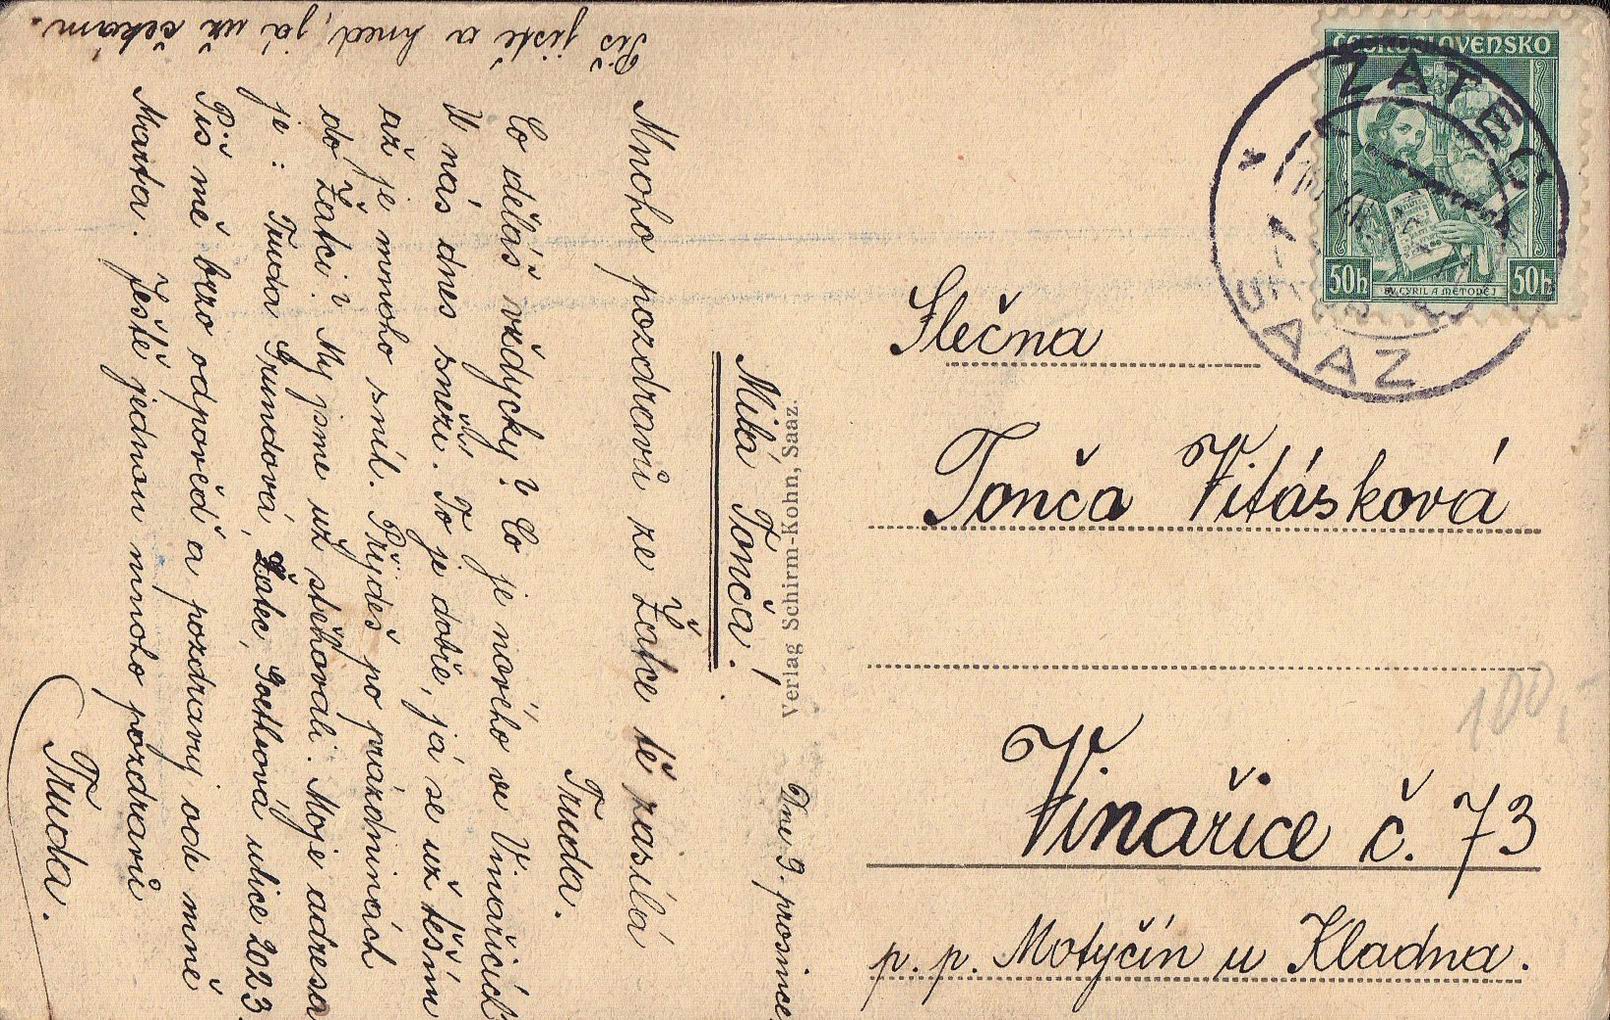 Piš jistě a hned, já už čekám.
Dne 9. prosince
Milá Tonča!
Mnoho pozdravů ze Žatce tě zasílá
Truda.
Co děláš vždycky? Co je nového ve Vinařicích
U nás dnes sněží. To je dobře, já se už těším
až je mnoho sníh. Přijdeš po prázdninách
do Žatci? My jsme už stěhovali. Moje adresa
je: Truda Grundová, Žatec, Goethová ulice 2023.
Piš mě brzo odpověď a pozdravy ode mně
Marta. Ještě jednou mnoho pozdravů
Truda.
Verlag Schirm-Kohn, Saaz.
ČESKOSLOVENSKO
50h
SV. CYRIL A METODĚJ
50h
ŽATEC
SAAZ
Slečna
Tonča Vitásková
Vinařice č. 73
p. p. Motyčín u Kladna.
100,-